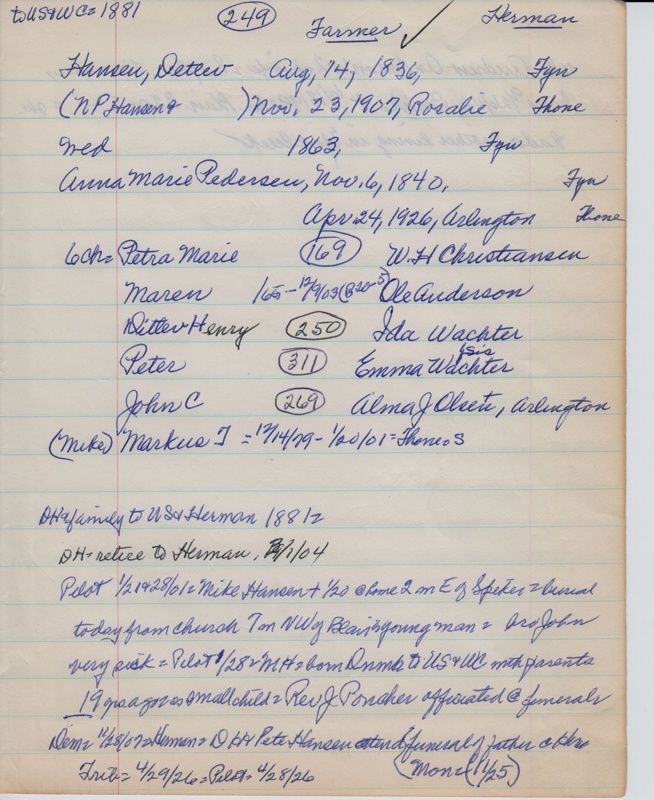 to US & WC = 1881 249 Farmer ✓ Herman
Hansen, Detlev Aug, 14, 1836, Fyn
(NP Hansen & ) Nov. 23, 1907, Rosalie Thone
Wed 1863, Fyn
Anna Marie Pedersen, Nov. 6, 1840, Fyn
Apr. 24, 1926, Arlington Thone
6 ch = Petra Marie 169 W.H Christiansen
Maren Ole Anderson
Ditlev Henry 250 Ida Wachter
Peter 311 Emma Wachter sis
John C 269 Alma J Olsen, Arlington
(Mike) Markus T = 12/14/79 - 1/20/01 = Thone = S
DH & family to US & Herman 1881 =
DH = retire to Herman, /1/04
Pilot 1/21 & 28/01 = Mike Hansen + 1/20 @ home 2 m E of = burial
today from church 7 m NW of Blair = young man = bro John
very sick = Pilot 1/28 = MH = born Dnmk to US & WC with parents
19 yrs ago as small child = Rev J. Poncher officiated @ funerals
Dem = 11/28/07 = Herman = DH & Pete Hansen attend funeral of father @
Trib = 4/29/26 = Pilot = 4/28/26 (Mon = 11/25)